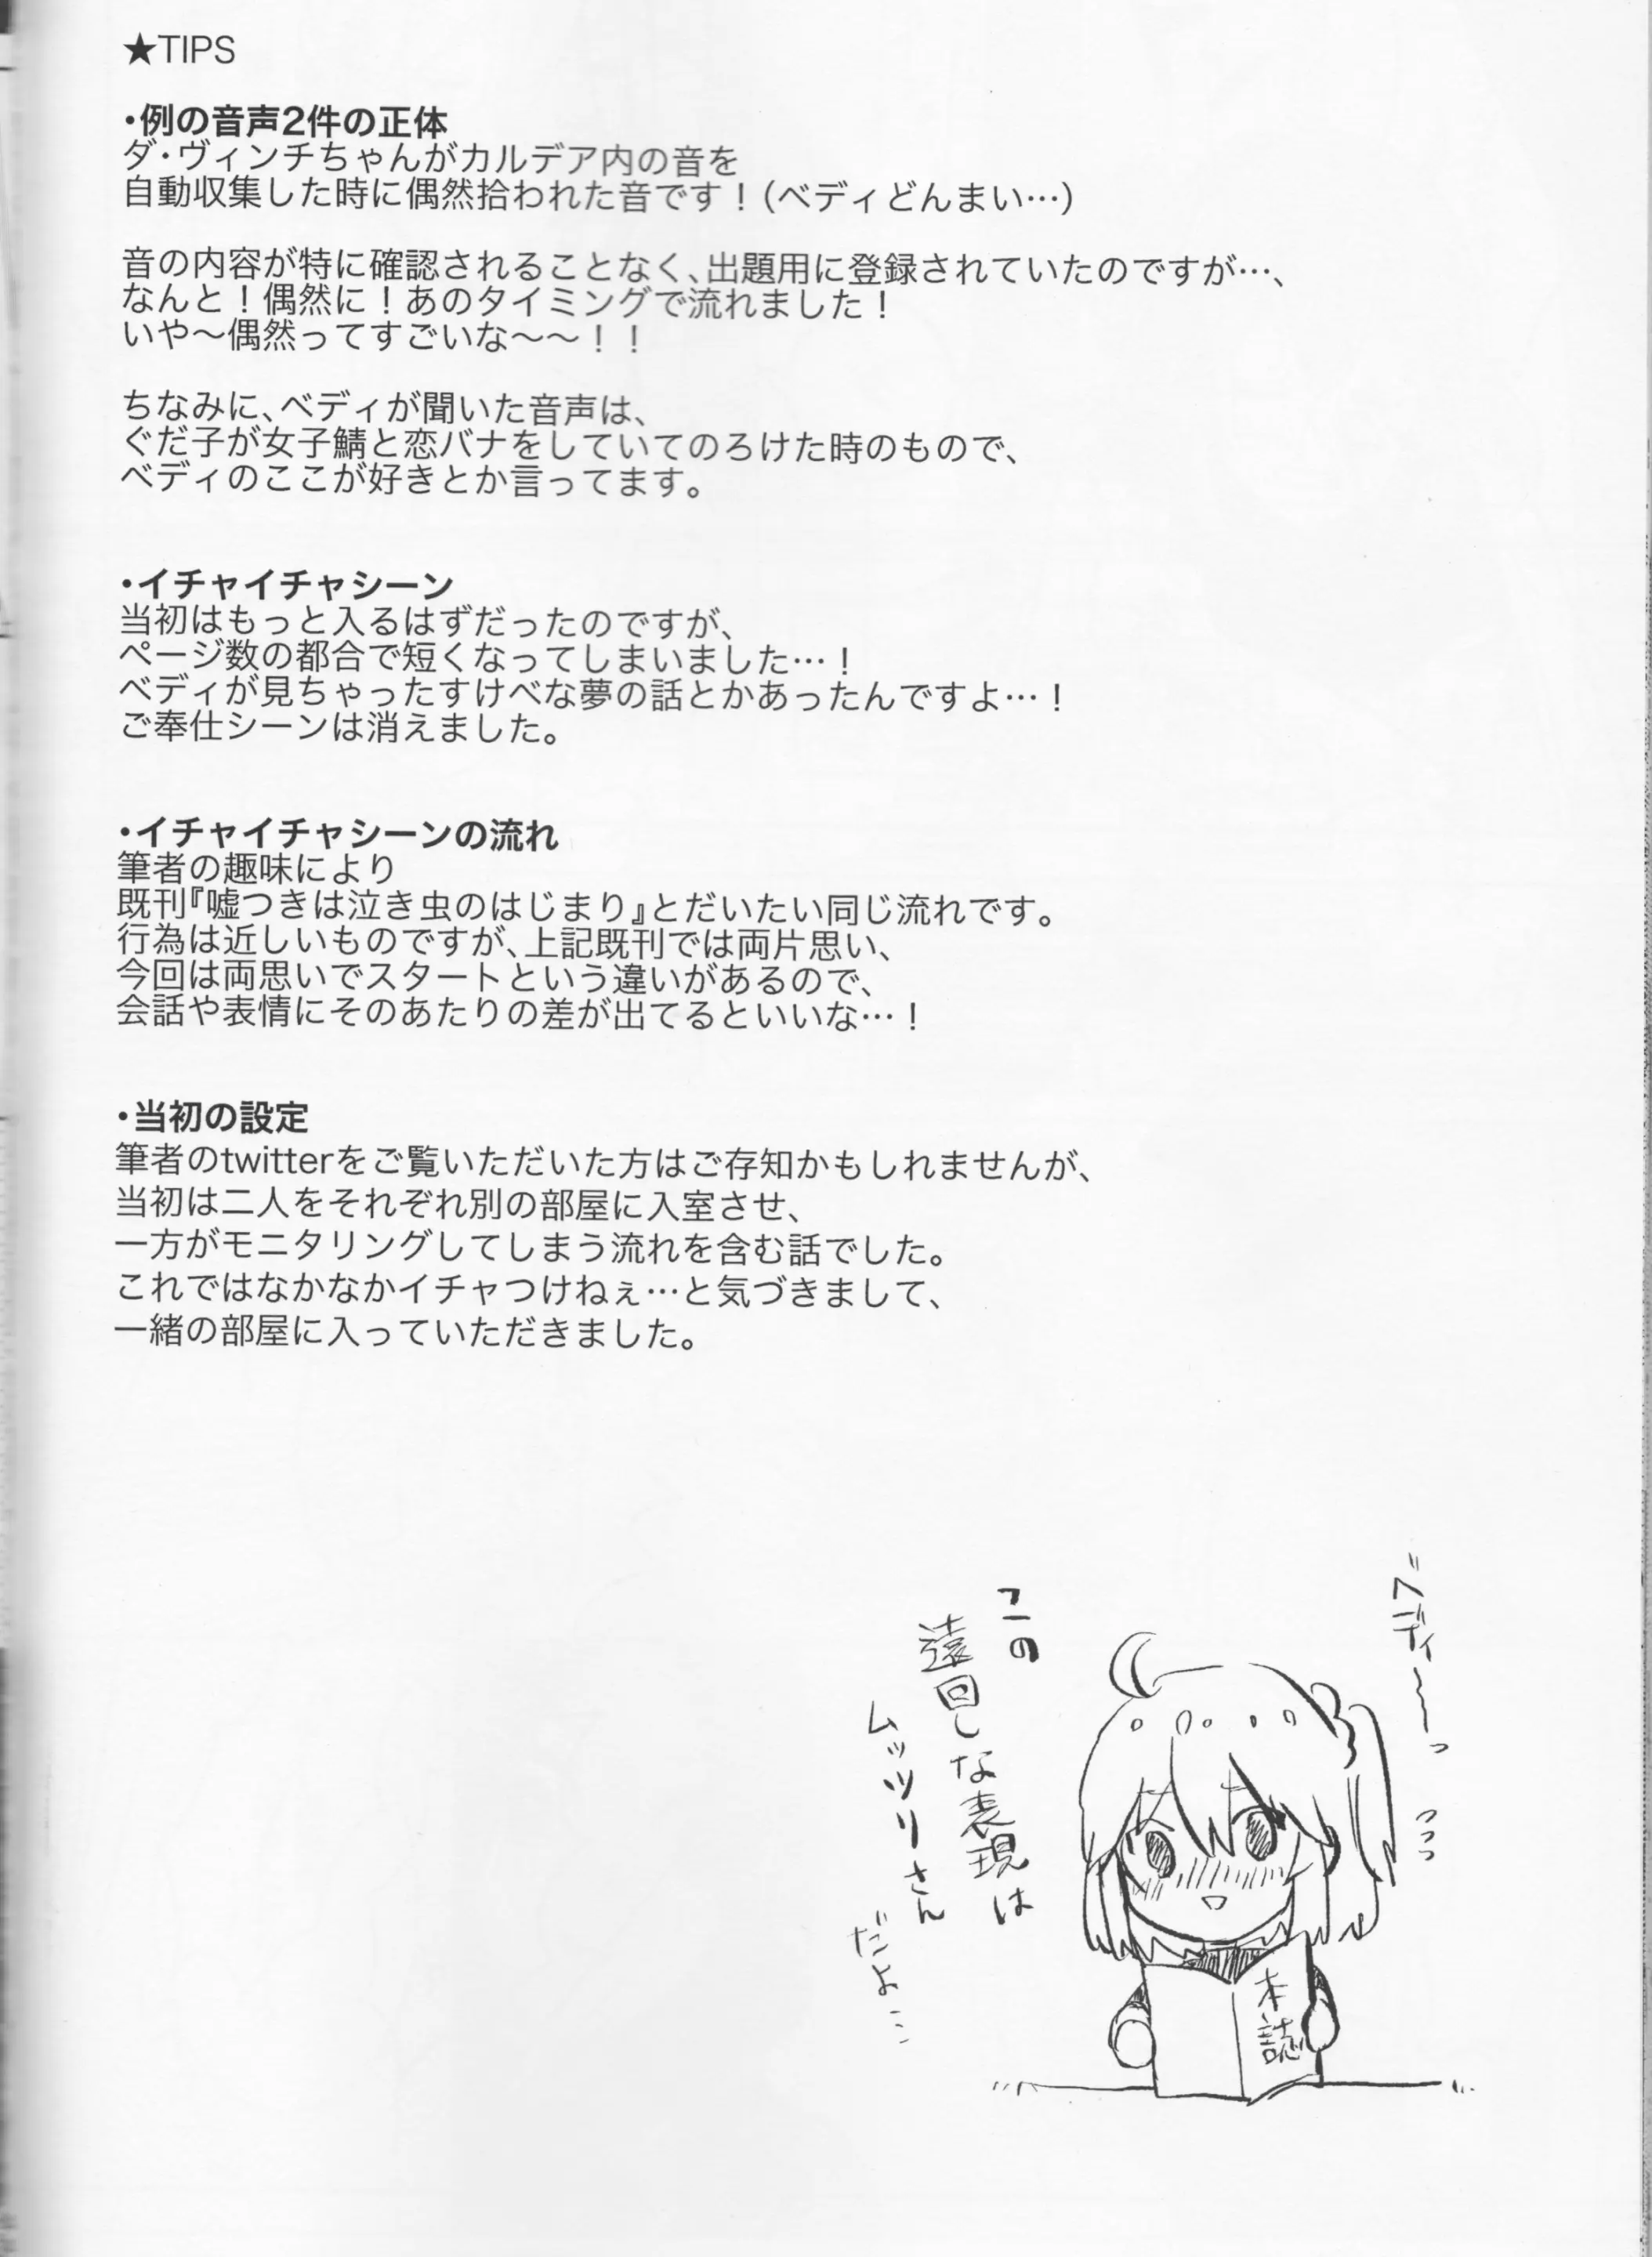 ★TIPS
・例の音声2件の正体
ダ・ヴィンチちゃんがカルデア内の音を
自動収集した時に偶然拾われた音です！(ベディどんまい…)
音の内容が特に確認されることなく、出題用に登録されていたのですが…、
なんと！偶然に！あのタイミングで流れました！
いや～偶然ってすごいな～～！！
ちなみに、ベディが聞いた音声は、
ぐだ子が女子鯖と恋バナをしていてのろけた時のもので、
ベディのここが好きとか言ってます。
・イチャイチャシーン
当初はもっと入るはずだったのですが、
ページ数の都合で短くなってしまいました…！
ベディが見ちゃったすけべな夢の話とかあったんですよ…！
ご奉仕シーンは消えました。
・イチャイチャシーンの流れ
筆者の趣味により
既刊『嘘つきは泣き虫のはじまり』とだいたい同じ流れです。
行為は近しいものですが、上記既刊では両片思い、
今回は両思いでスタートという違いがあるので、
会話や表情にそのあたりの差が出てるといいな…！
・当初の設定
筆者のtwitterをご覧いただいた方はご存知かもしれませんが、
当初は二人をそれぞれ別の部屋に入室させ、
一方がモニタリングしてしまう流れを含む話でした。
これではなかなかイチャつけねぇ…と気づきまして、
一緒の部屋に入っていただきました。
ベディ～～っ
この
遠回しな表現は
ムッツリさん
だよ…
本誌